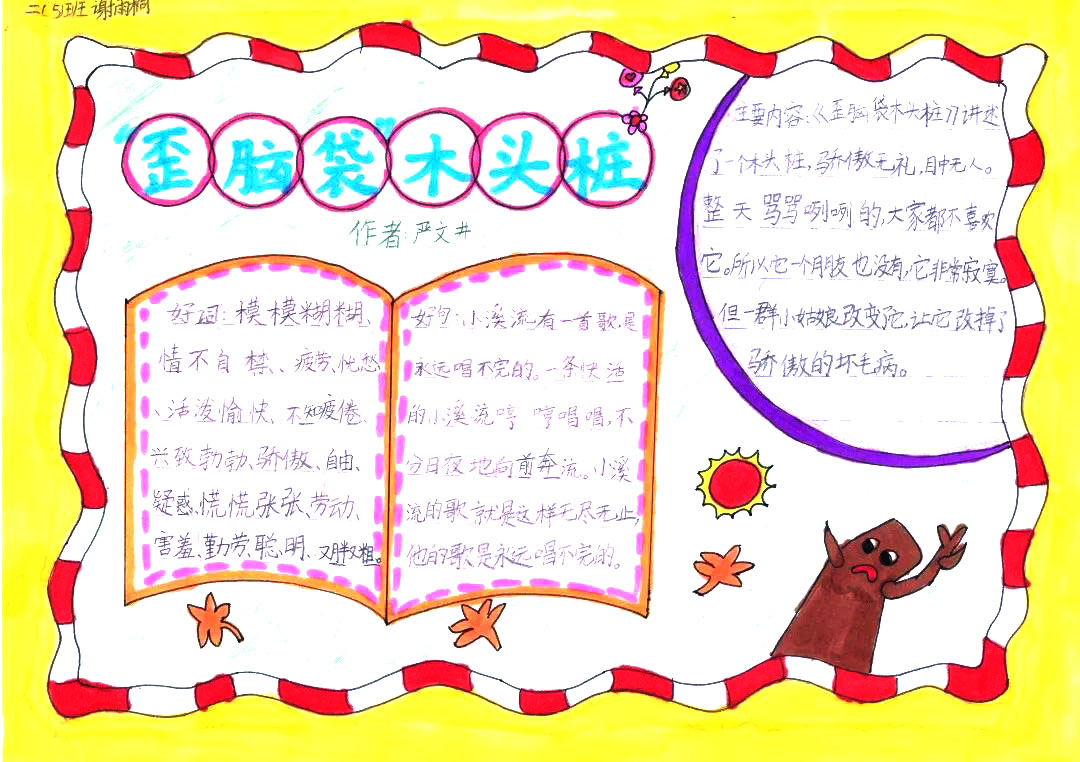 二(5)班 谢雨桐
“歪脑袋”木头桩
作者:严文井
好词:模模糊糊、
情不自禁、疲劳、忧愁
、活泼愉快、不知疲倦、
兴致勃勃、骄傲、自由、
疑惑、慌慌张张、劳动、
害羞、勤劳、聪明、又胖又粗。
好句:小溪流有一首歌,是
永远唱不完的。一条快活
的小溪流哼哼唱唱,不
分日夜地向前奔流。小溪
流的歌就是这样无尽无止,
他的歌是永远唱不完的。
主要内容:《歪脑袋木头桩》讲述
了一个木头桩,骄傲无礼,目中无人。
整天骂骂咧咧的,大家都不喜欢
它。所以它一个朋友也没有,它非常寂寞。
但一群小姑娘改变了它,让它改掉了
骄傲的坏毛病。